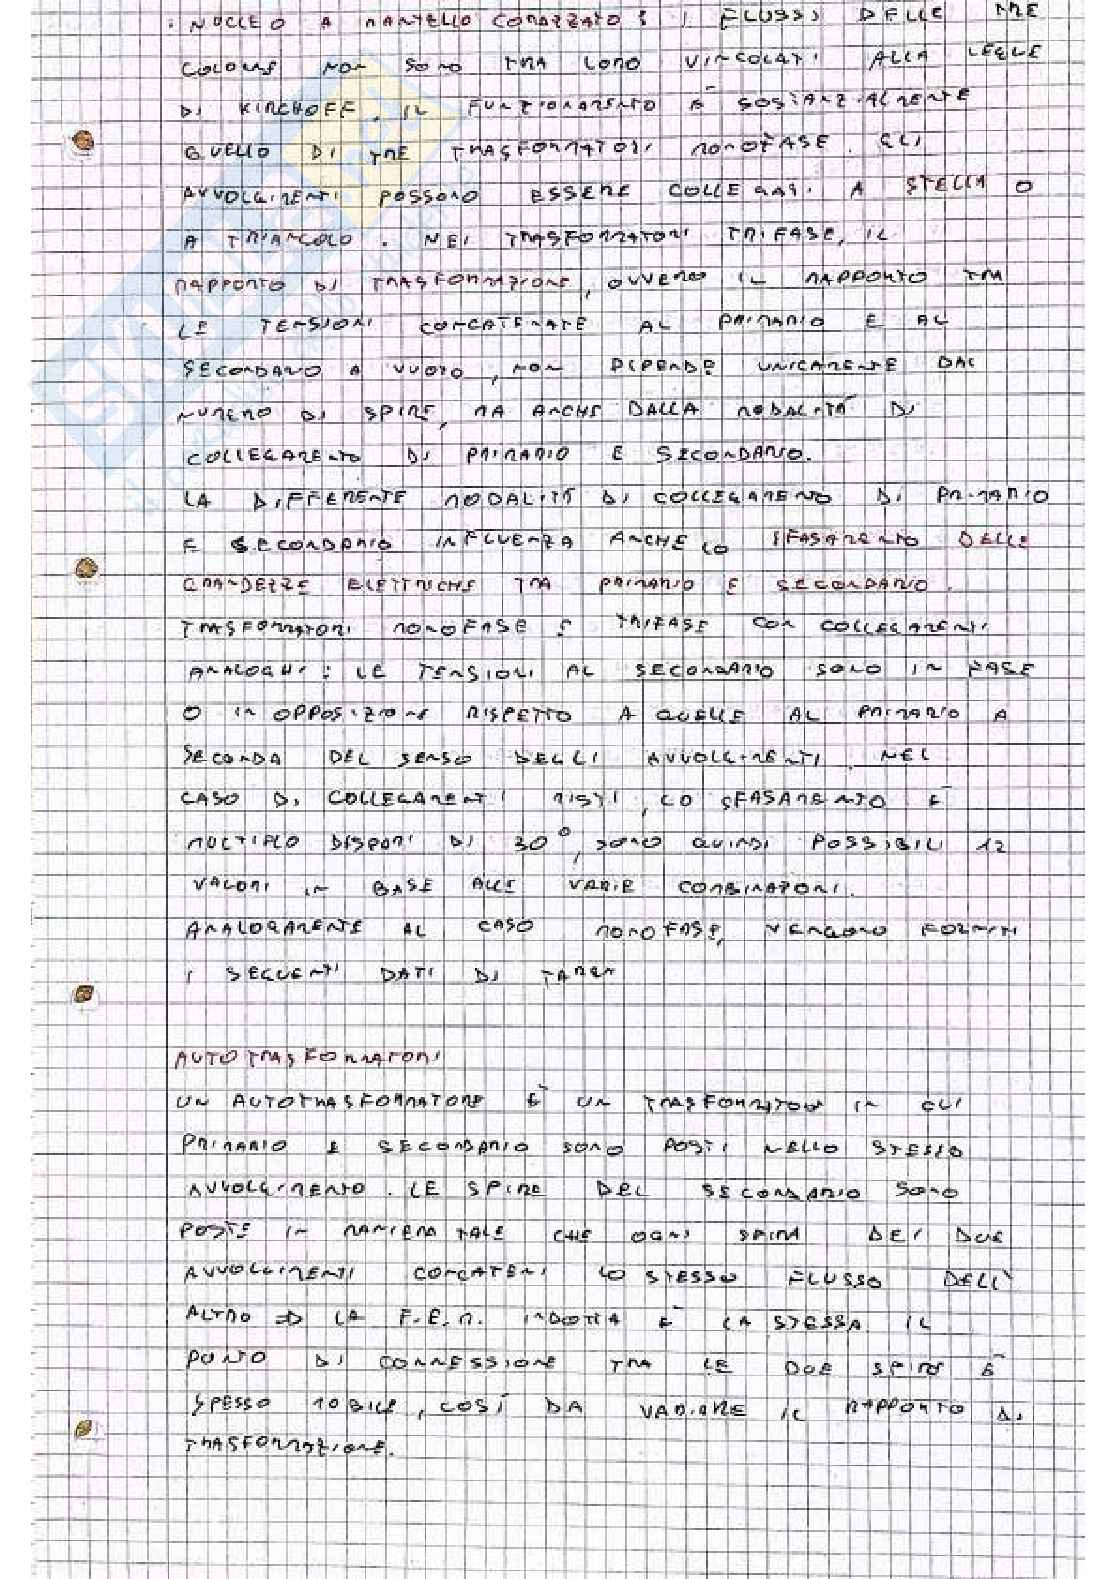 : NUCLEO A MANTELLO CORAZZATO : I FLUSSI DELLE TRE
COLONNE NON SONO TRA LORO VINCOLATI ALLA LEGGE
DI KIRCHOFF, IL FUNZIONAMENTO È SOSTANZIALMENTE
QUELLO DI TRE TRASFORMATORI MONOFASE. GLI
AVVOLGIMENTI POSSONO ESSERE COLLEGATI A STELLA O
A TRIANGOLO. NEI TRASFORMATORI TRIFASE, IL
RAPPORTO DI TRASFORMAZIONE, OVVERO IL RAPPORTO TRA
LE TENSIONI CONCATENATE AL PRIMARIO E AL
SECONDARIO A VUOTO, NON DIPENDE UNICAMENTE DAL
NUMERO DI SPIRE, MA ANCHE DALLA MODALITÀ DI
COLLEGAMENTO DI PRIMARIO E SECONDARIO.
LA DIFFERENTE MODALITÀ DI COLLEGAMENTO DI PRIMARIO
E SECONDARIO INFLUENZA ANCHE LO SFASAMENTO DELLE
GRANDEZZE ELETTRICHE TRA PRIMARIO E SECONDARIO.
TRASFORMATORI MONOFASE E TRIFASE CON COLLEGAMENTI
ANALOGHI : LE TENSIONI AL SECONDARIO SONO IN FASE
O IN OPPOSIZIONE RISPETTO A QUELLE AL PRIMARIO A
SECONDA DEL SENSO DEGLI AVVOLGIMENTI. NEL
CASO DI COLLEGAMENTI MISTI, LO SFASAMENTO È
MULTIPLO DISPARI DI 30°, SONO QUINDI POSSIBILI 12
VALORI IN BASE ALLE VARIE COMBINAZIONI.
ANALOGAMENTE AL CASO MONOFASE, VENGONO FORNITI
I SEGUENTI DATI DI TARGA
AUTOTRASFORMATORI
UN AUTOTRASFORMATORE È UN TRASFORMATORE IN CUI
PRIMARIO E SECONDARIO SONO POSTI NELLO STESSO
AVVOLGIMENTO. LE SPIRE DEL SECONDARIO SONO
POSTE IN MANIERA TALE CHE OGNI SPIRA DEI DUE
AVVOLGIMENTI CONCATENI LO STESSO FLUSSO DELL'
ALTRO => LA F.E.M. INDOTTA È LA STESSA. IL
PUNTO DI CONNESSIONE TRA LE DUE SPIRE È
SPESSO MOBILE, COSÌ DA VARIARE IL RAPPORTO DI
TRASFORMAZIONE.